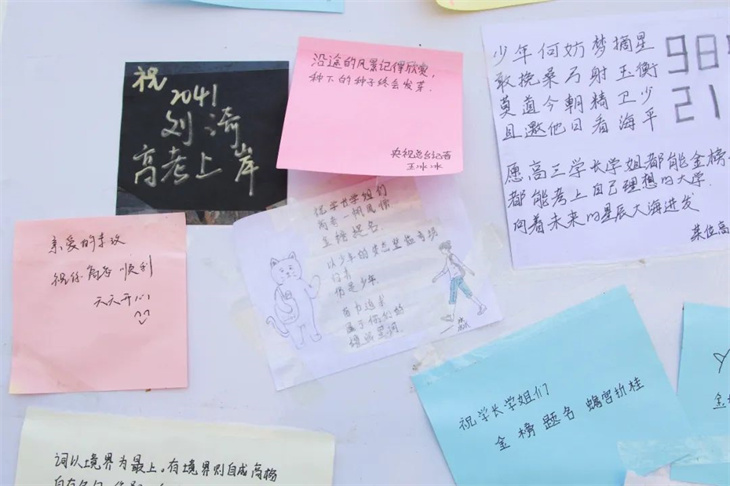 祝
2041
刘漪
高考上岸
沿途的风景记得欣赏,
种下的种子终会发芽.
央视总台记者
王冰冰
少年何妨梦摘星
敢挽桑弓射玉衡
莫道今朝精卫少
且邀他日看海平
985
21
愿高三学长学姐都能金榜
都能考上自己理想的大学.
向着未来的星辰大海进发
某位高
亲爱的
祝你高考顺利
天天开心
学长学姐们
金榜题名
以少年的
仍是少年
祝学长学姐们
金榜题名 蟾宫折桂
金榜
词以境界为最上,有境界则自成高格
自有名句